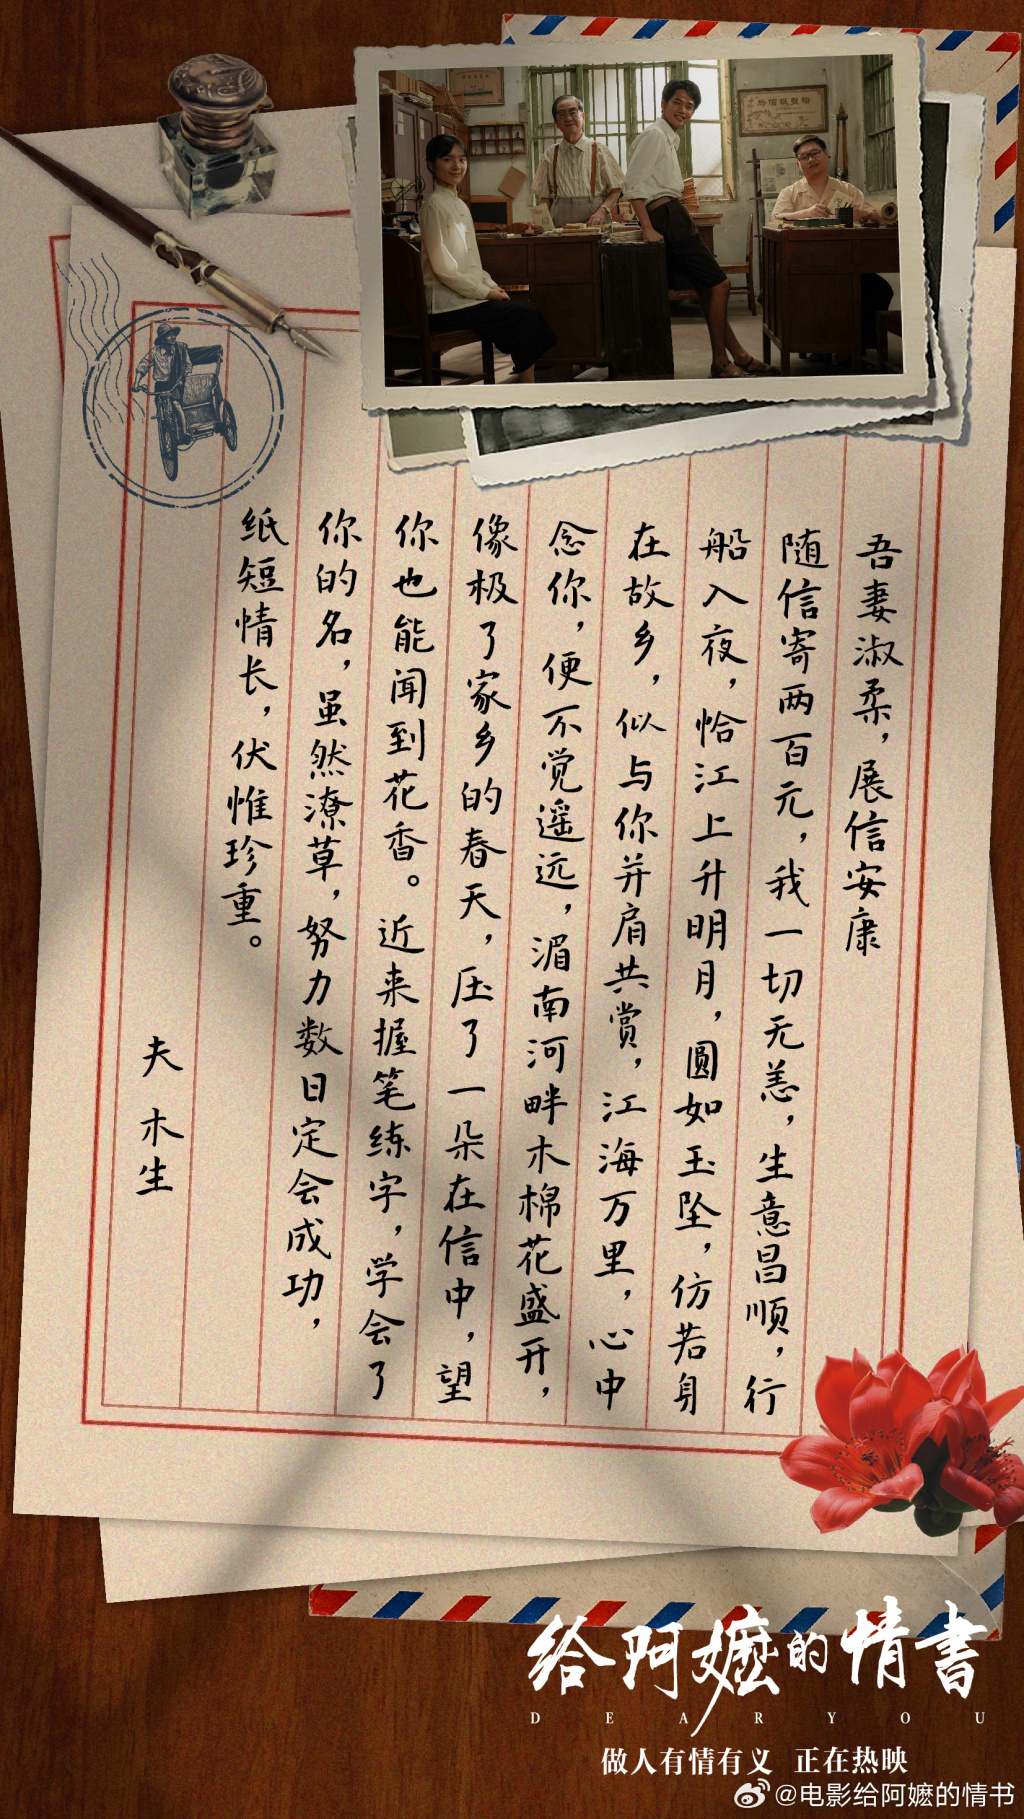 吾妻淑柔，展信安康
随信寄两百元，我一切无恙，生意昌顺，行
船入夜，恰江上升明月，圆如玉坠，仿若身
在故乡，似与你并肩共赏，江海万里，心中
念你，便不觉遥远，湄南河畔木棉花盛开，
像极了家乡的春天，压了一朵在信中，望
你也能闻到花香。近来握笔练字，学会了
你的名，虽然潦草，努力数日定会成功，
纸短情长，伏惟珍重。
夫 木生
给阿嬷的情書
DEAR YOU
做人有情有义 正在热映
@电影给阿嬷的情书